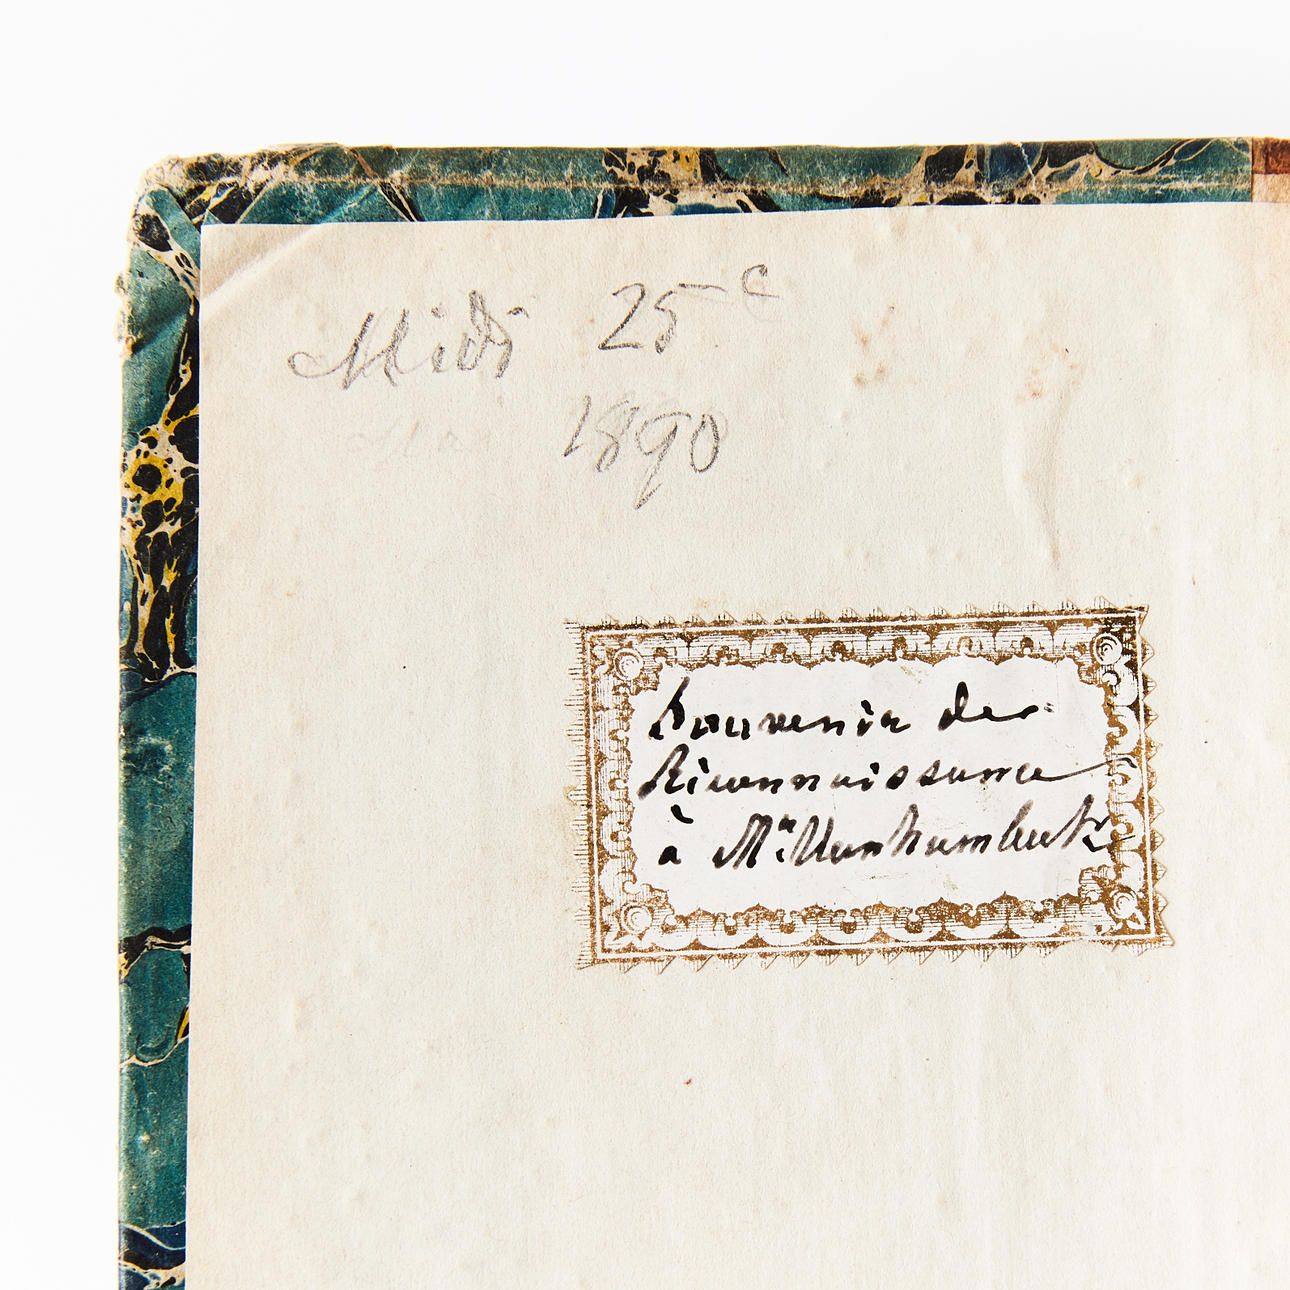 Midi 25 c
1890
Souvenir de
Riconnaissance
à Mr.